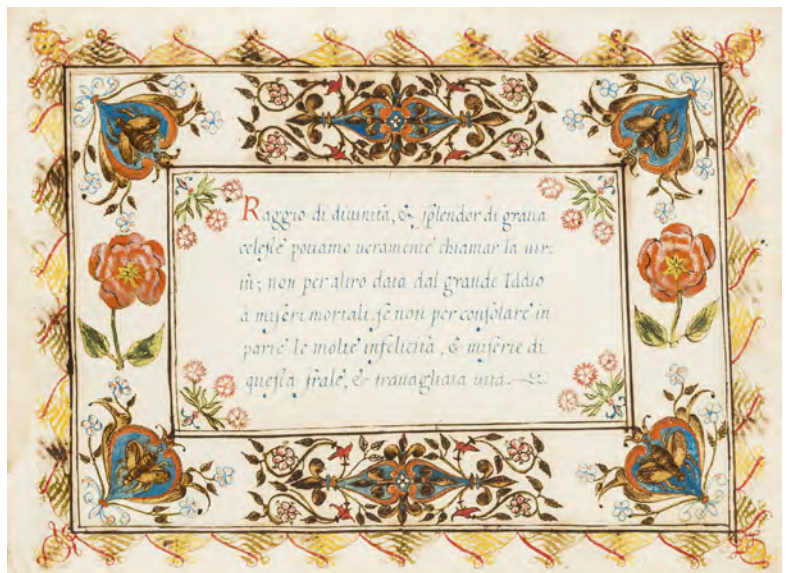 Raggio di diuinità, & splendor di gratia
celeste potiamo ueramente chiamar la uir:
tù; non per altro data dal grande Iddio
à miseri mortali, se non per consolare in
parte le molte infelicità, & miserie di
questa frale, & trauagliata uita.